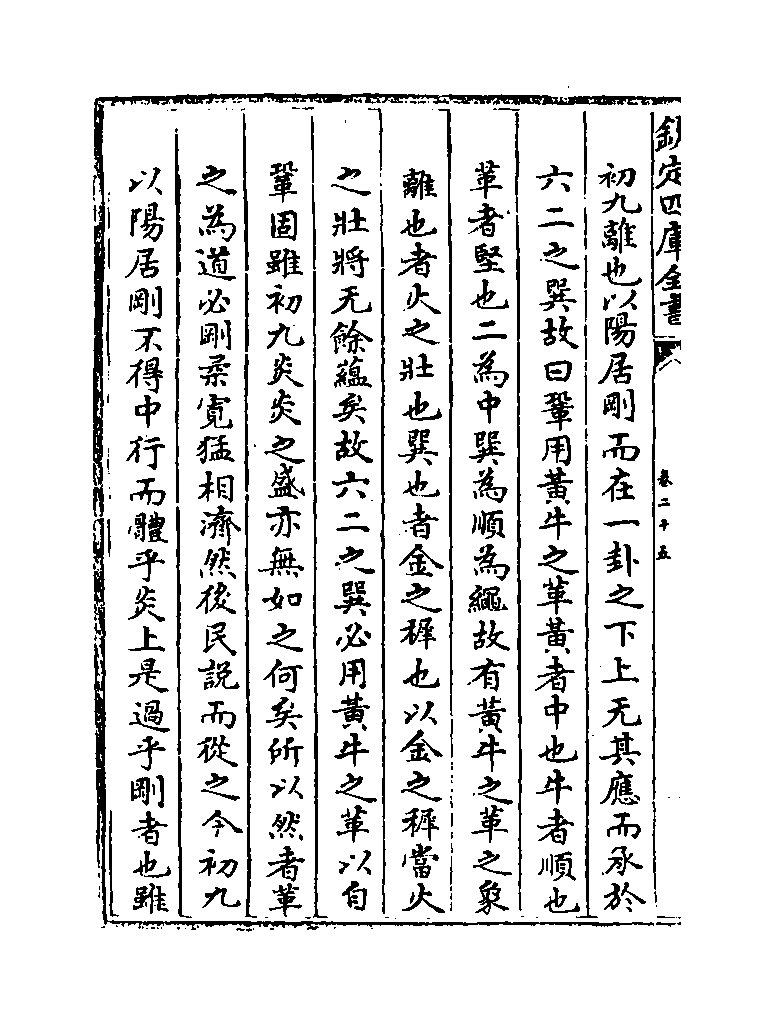 欽定四庫全書
卷二十五
初九離也以陽居剛而在一卦之下上无其應而承於
六二之巽故曰鞏用黄牛之革黄者中也牛者順也
革者堅也二為中巽為順為繩故有黄牛之革之象
離也者火之壯也巽也者金之穉也以金之穉當火
之壯將无餘藴矣故六二之巽必用黄牛之革以自
鞏固雖初九炎炎之盛亦無如之何矣所以然者革
之為道必剛柔寛猛相濟然後民説而從之今初九
以陽居剛不得中行而體乎炎上是過乎剛者也雖